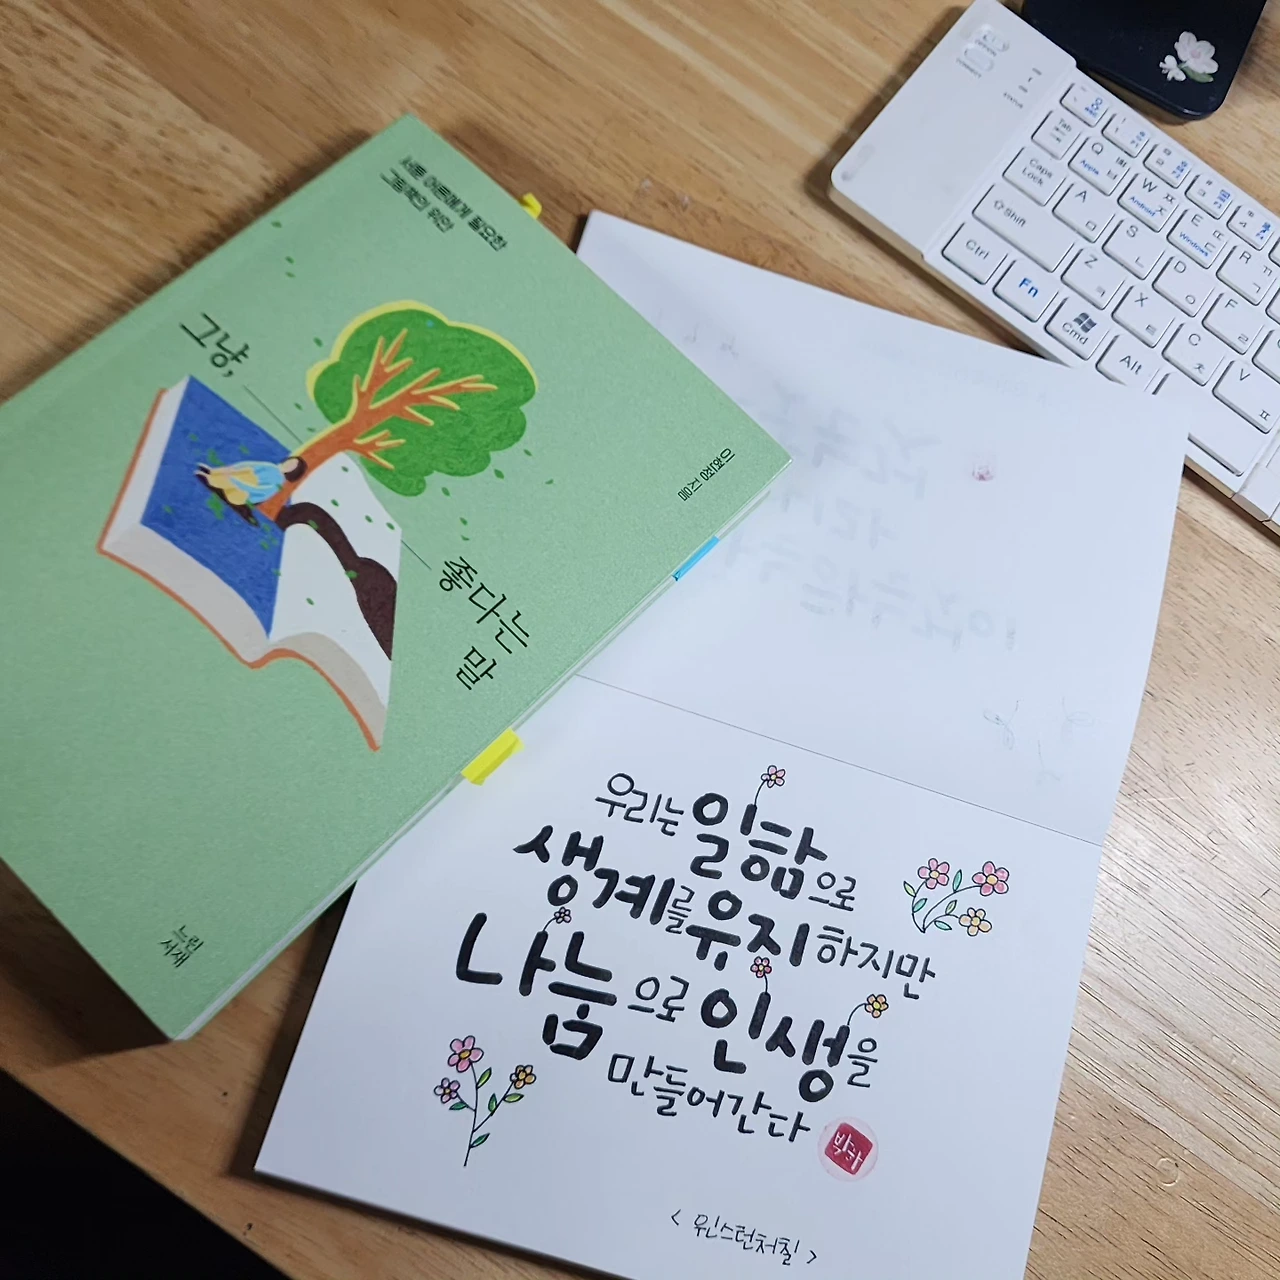 서툰 어른에게 필요한
그림책의 위안
그냥,
좋다는
말
이현정 지음
느린
서재
우리는 일함으로
생계를 유지하지만
나눔으로 인생을
만들어간다
< 윈스턴처칠 >
OPTION
CONNECT
STATUS
Tab
Q ㅂ Apple
W ㅈ Android
E ㄷ Windows
R ㄱ
Caps Lock
A ㅁ
S ㄴ
D ㅇ
F ㄹ
Shift
Z ㅋ
X ㅌ
C ㅊ
V ㅍ
Ctrl
Fn
Cmd
Alt